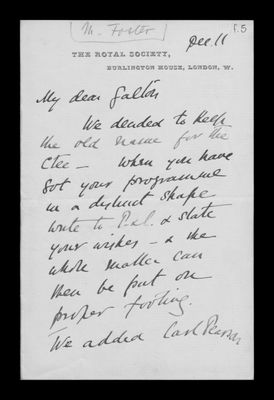 [M. Foster]
f.5
Dec. 11
THE ROYAL SOCIETY,
BURLINGTON HOUSE, LONDON, W.
My dear Galton
We decided to keep
the old name for the
Ctee — when you have
got your programme
in a distinct shape
write to P.&C. & state
your wishes — & the
whole matter can
then be put on
proper footing.
We added Carl Pearson